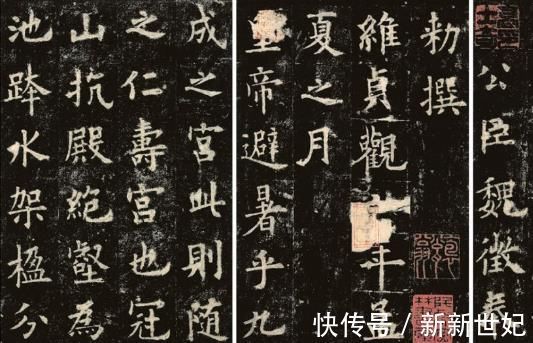 公臣魏徵奉
勑撰
維貞觀年孟
夏之月
皇帝避暑乎九
成之宮此則随
之仁壽宮也冠
山抗殿絕壑為
池跨水架楹分
快传号 / 新新世妃